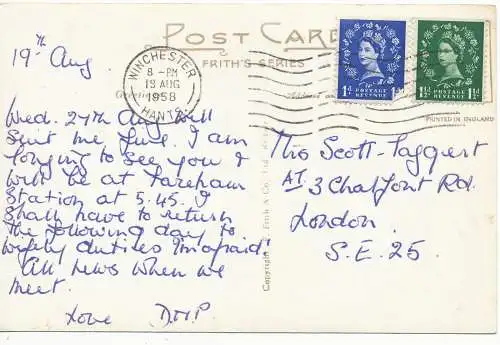 POST CARD
FRITH'S SERIES
19th Aug.
WINCHESTER
8 - PM
19 AUG
1958
HANTS
1D POSTAGE REVENUE 1D
1½D POSTAGE REVENUE 1½D
PRINTED IN ENGLAND
Wed. 27th Aug. will
suit me fine. I am
longing to see you &
will be at Fareham
Station at 5.45. I
shall have to return
the following day to
wifely duties I'm afraid!
All news when we
meet.
Love D.M.P.
Copyright F. Frith & Co. Ltd.
Mrs Scott-Taggert
AT 3 Chalfont Rd.
London.
S.E. 25.